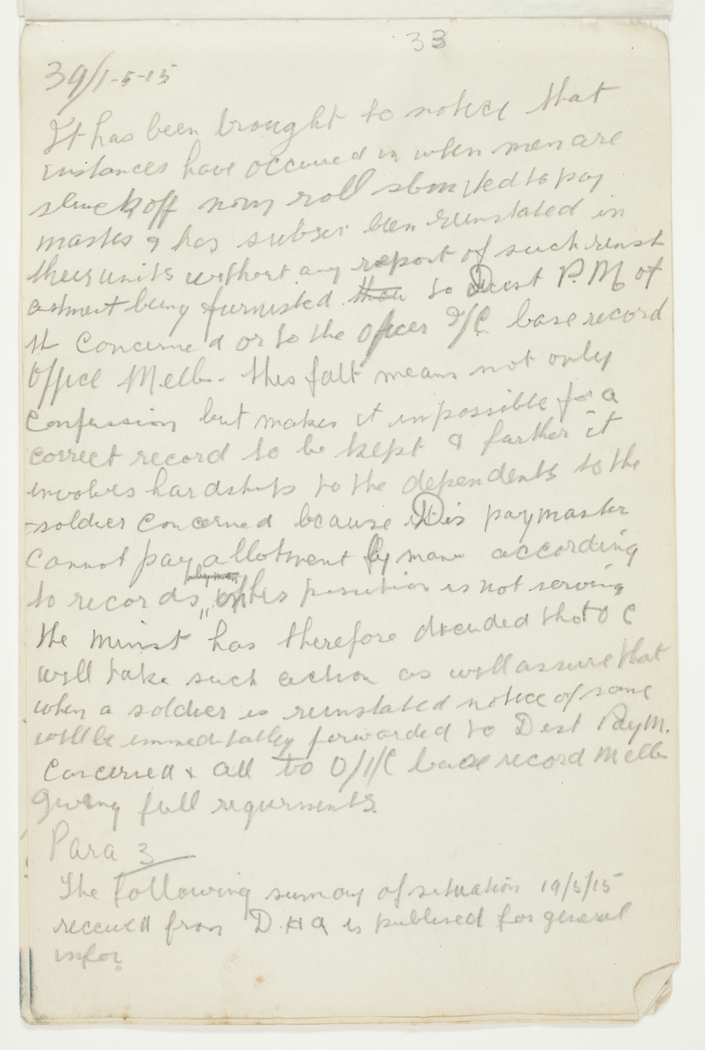 33
39/1-5-15
It has been brought to notice that
instances have occured in when men are
struck off nom roll sbmited to pay
master & has subseq been reinstated in
their units without any report of such reinst
atment being furnished to Dist P.M of
concerned or to the Officer I/C base record
Office Melb. this falt means not only
confussion but makes it impossible for a
correct record to be kept & farther it
involves hardships to the dependents to the
soldier concerned because Dis paymaster
cannot pay allotment by man according
to records is not serving
the Minist has therefore decided that O C
will take such action as will assure that
when a soldier is reinstated notice of same
will be immeditatley forwarded to Dist PayM.
Concerned & all to O/I/C base record Melb
giving full requirments.
Para 3
The following sumary of situation 19/5/15
received from D.H.Q is published for general
infor